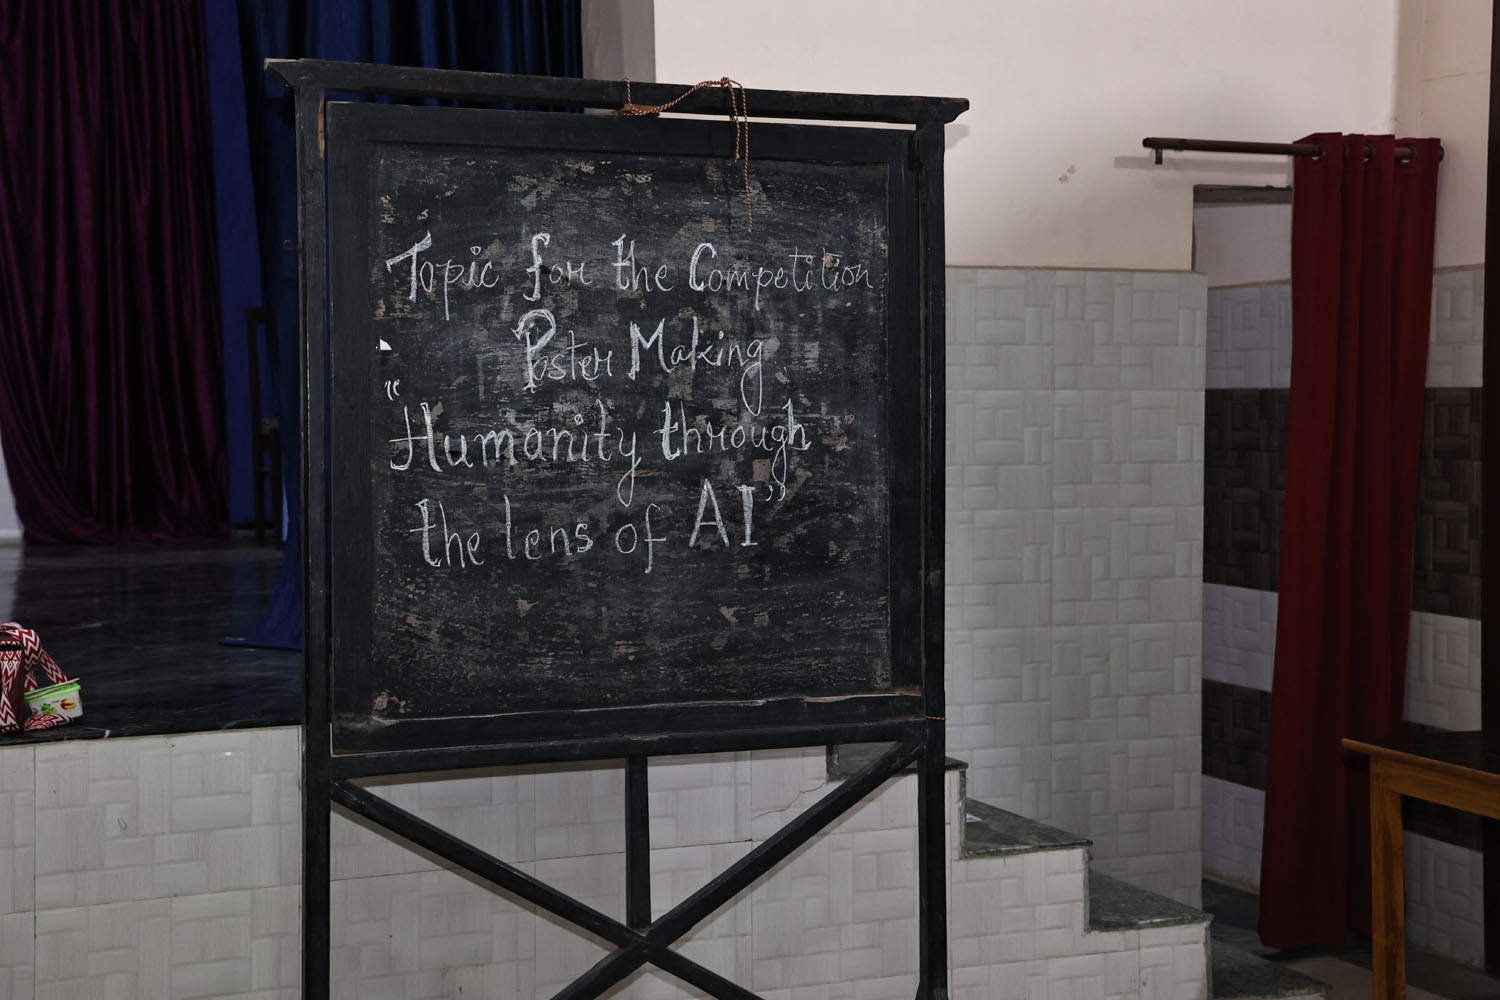 Topic for the Competition
Poster Making
"Humanity through
the lens of AI"